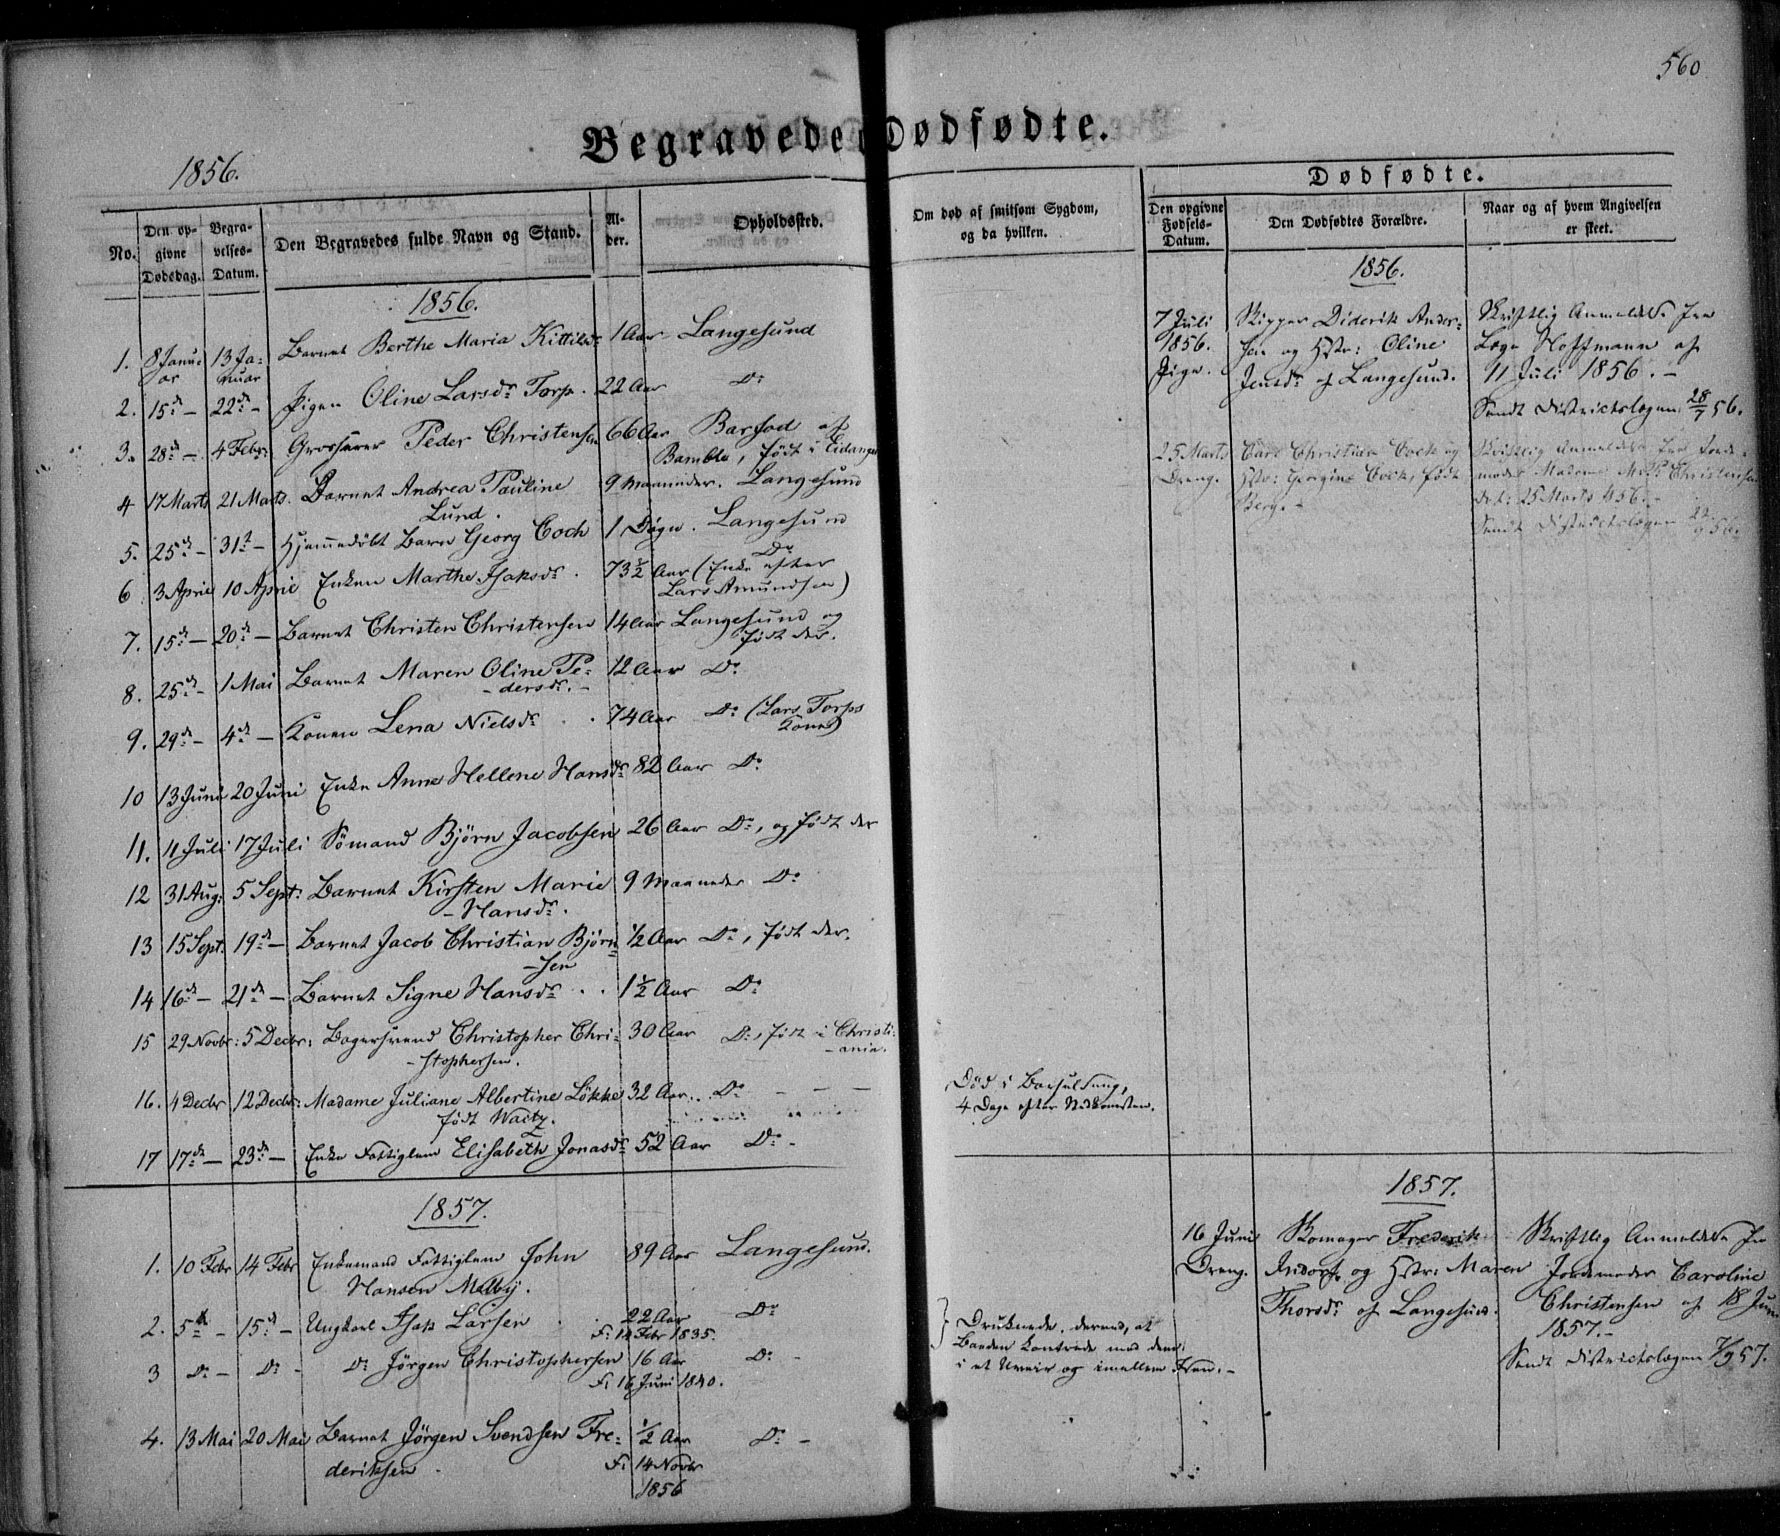 560
Begravede. Dødfødte.
1856.
No.
Den opgivne Dødsdag.
Begravelses-Datum.
Den Begravedes fulde Navn og Stand.
Alder.
Opholdssted.
Om død af smitsom Sygdom,
og da hvilken.
1856.
1. 8 Januar 13 Januar Barnet Berthe Maria Kittilsdr 1 Aar Langesund
2. 15de – 22de – Pigen Oline Larsdr Torp. 22 Aar Do
3. 28de – 4 Febr: Peder Christensen 66 Aar af
Bamble, født i Eidanger
4 17 Marts 21 Marts. Barnet Andrea Pauline 9 Maaneder. Langesund
Lund.
5. 25de – 31te – Hjemmedøbt Barn Georg Cock 1 Døgn. Langesund
6 3 April 10 April Enken Marthe Isaksdr. 73½ Aar Do (Enke efter
Lars Amundsen)
7. 15de – 20de – Barnet Christen Christensen 14 Aar Langesund og
født der.
8. 25de – 1 Mai Barnet Maren Oline Pe- 12 Aar Do
-dersdr. –
9. 29de – 4de – Konen Lena Nielsdr . . 74 Aar Do (Lars Torps
Kone)
10 13 Juni 20 Juni Enke Anne Hellene Hansdr 82 Aar Do
11. 11 Juli 17 Juli Sömand Björn Jacobsen 26 Aar Do, og født der
12 31 Aug: 5 Sept: Barnet Kirsten Marie 9 Maaneder Do
– Hansdr.
13 15 Sept: 19de – Barnet Jacob Christian Björn- ½ Aar Do, født der.
-sen
14 16de – 21de – Barnet Signe Hansdr . . 1½ Aar Do
15 29 Novbr: 5 Decbr: Bagersvend Christopher Chri- 30 Aar Do, født i Christi-
-stophersen. -ania.
16. 4 Decbr 12 Decbr: Madame Juliane Albertine Lökke 32 Aar. Do – –
født Waitz.
Død i Barselseng,
4 Dage efter Nedkomsten.
17 17de – 23de – Enke Fattiglem Elisabeth Jonasdr 52 Aar Do –
1857.
1. 10 Febr 14 Febr Enkemand Fattiglem John 89 Aar Langesund.
Hansen Melby.
2. 5te – 15de – Ungkarl Isak Larsen . . 22 Aar Do
F. 14 Febr 1835.
3 Do – Do – Do Jörgen Christophersen 16 Aar Do –
F. 16 Juni 1840.
Druknede, derved, at
Baaden kantrede med dem
i et Uveir og imellem
4. 13 Mai 20 Mai Barnet Jörgen Svendsen Fre- ½ Aar Do –
deriksen. F. 14 Novbr
1856
Dødfødte.
Den opgivne Fødsels-Datum.
Den Dødfødtes Forældre.
Naar og af hvem Angivelsen
er skeet.
1856.
7 Juli Skipper Diderik Ander- Skriftlig Anmeldelse fra
1856. sen og Hstr: Oline Læge Hoffmann af
Pige. Jensdr af Langesund. 11 Juli 1856. –
Sendt Districtslægen 28/7 56.
25 Marts Carl Christian Cock og Skriftlig Anmeldelse fra Jorde-
Dreng. Hstr: Georgine Cock, født moder Madame Christensen
Berg. – dat: 25 Marts 1856. –
Sendt Districtslægen 56.
1857.
16 Juni Frederik Skriftlig Anmeldelse fra
Dreng. og Hstr: Maren Jordemoder Caroline
Thorsdr af Langesund. Christensen af 18 Juni
1857. –
Sendt Districtslægen 7/9 57.